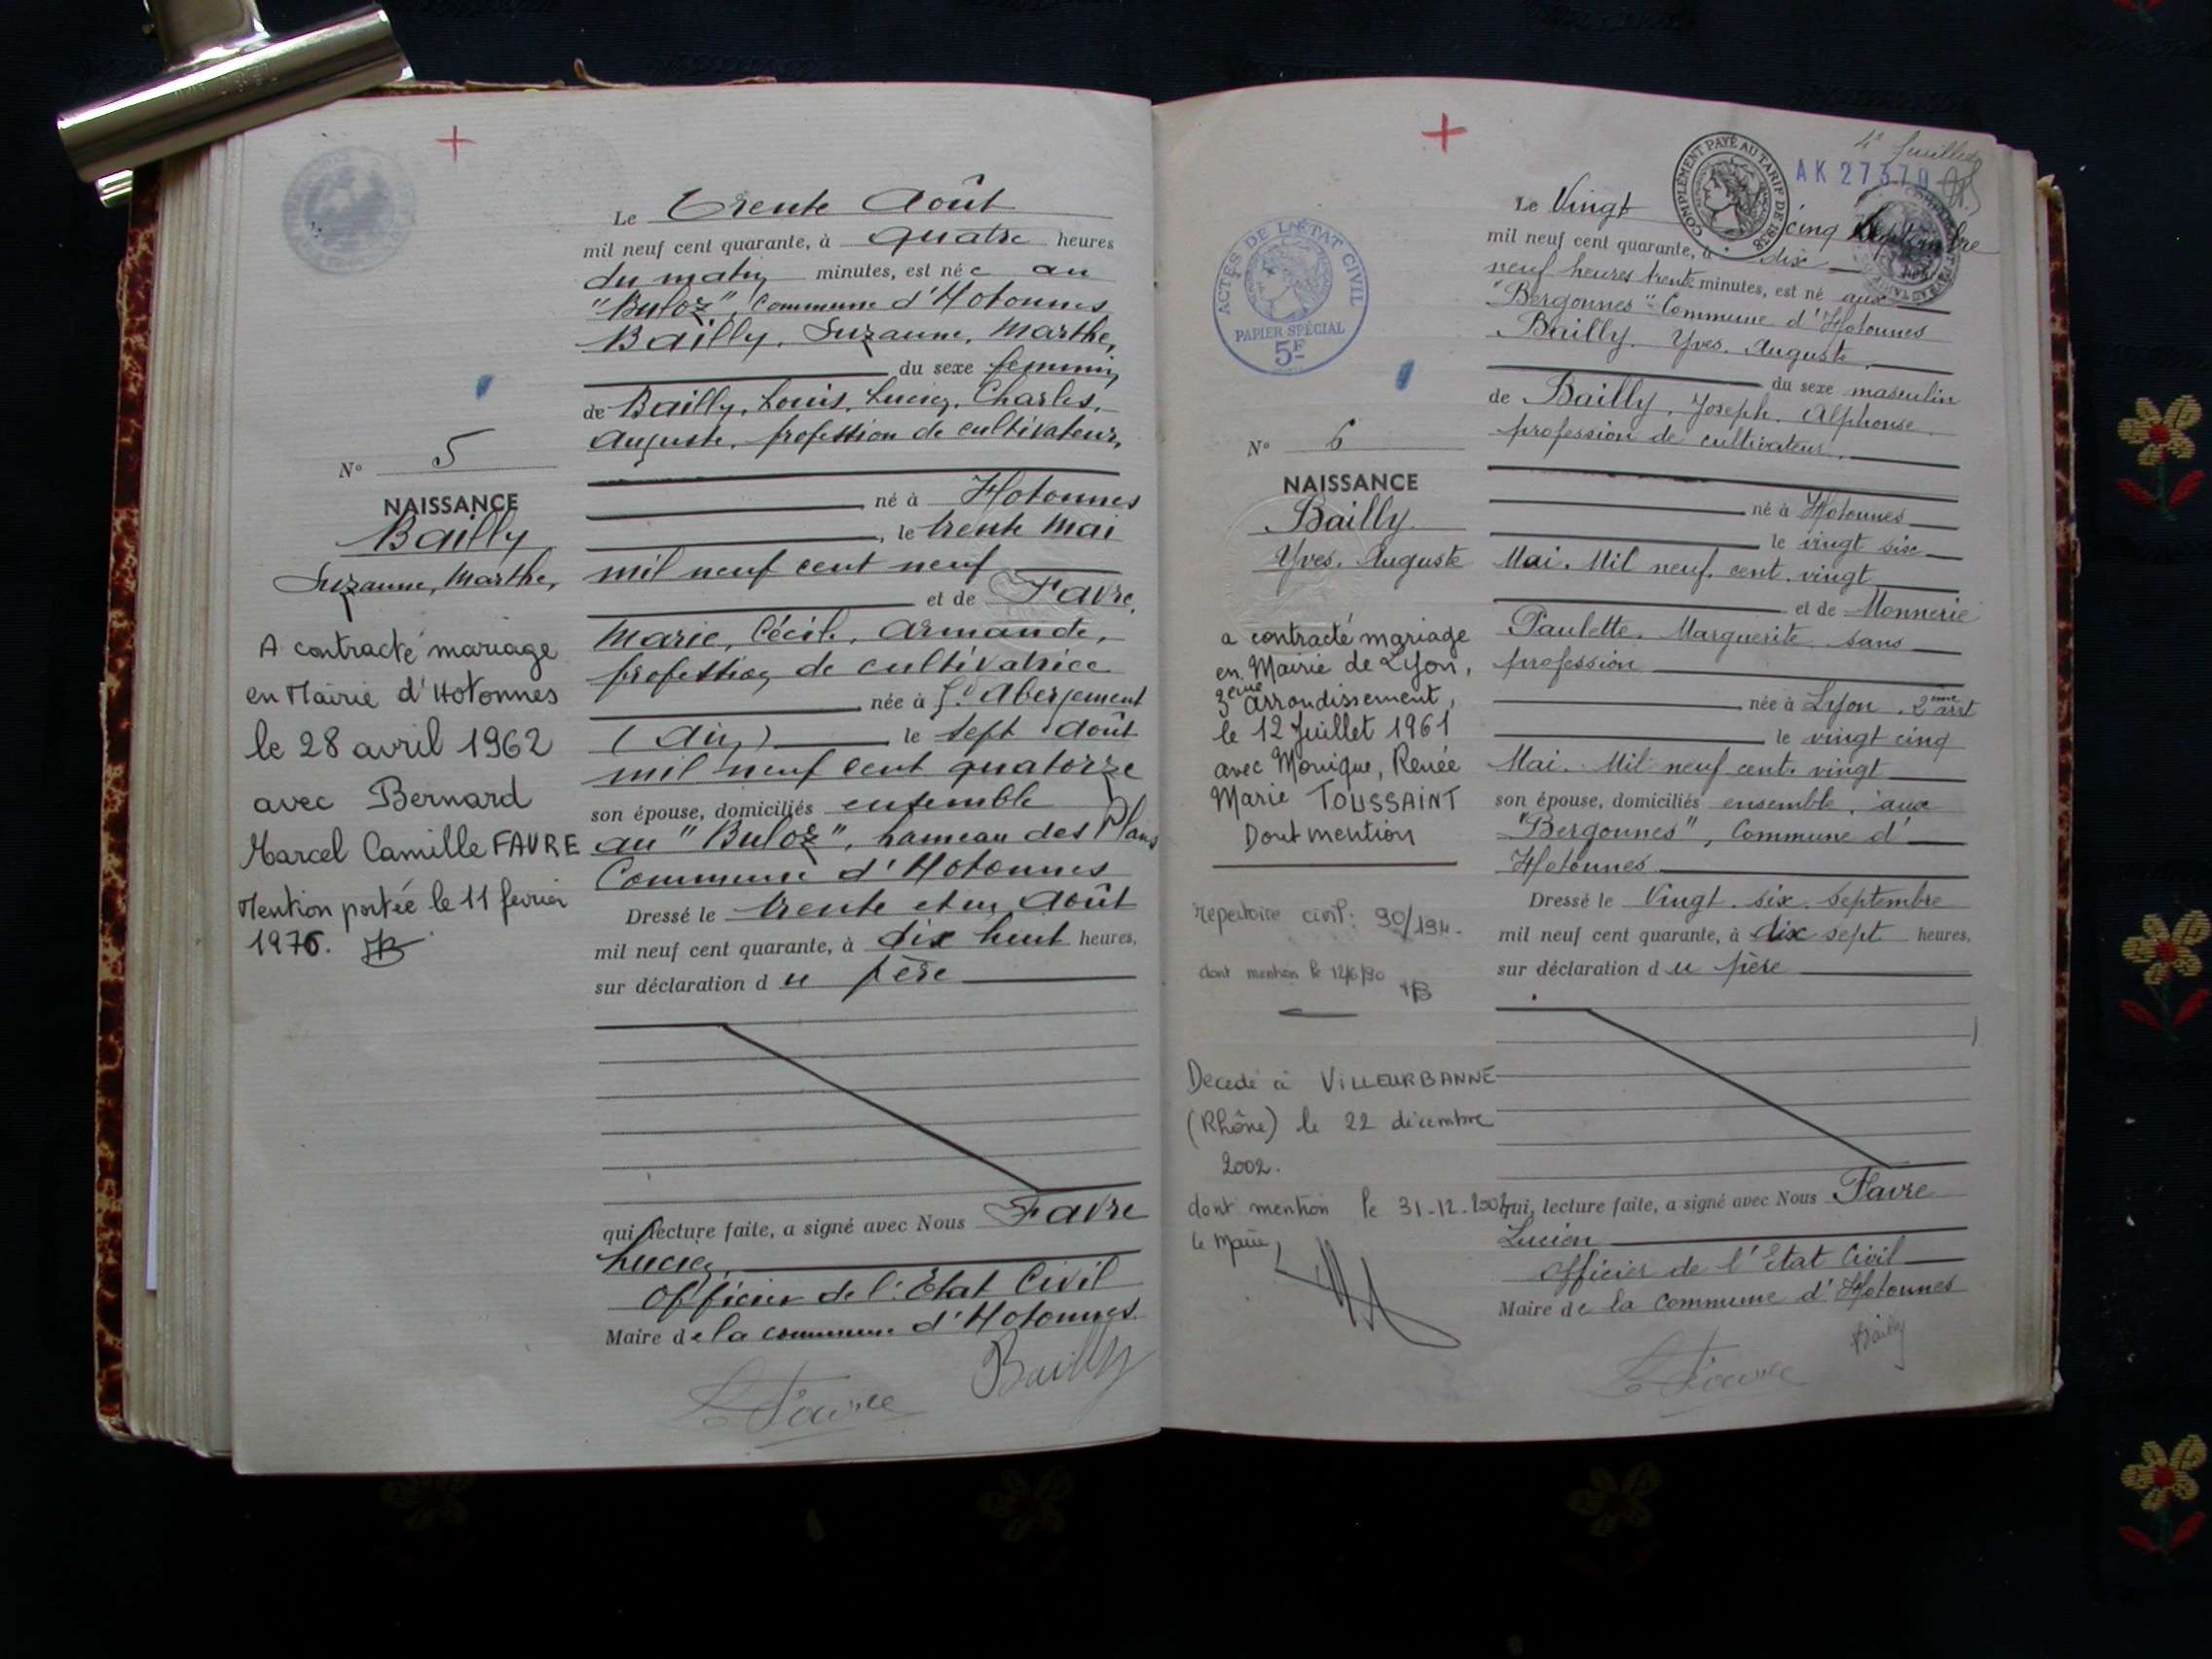 Le Trente Août
mil neuf cent quarante, à quatre heures
du matin minutes, est née au
"Buloz", Commune d'Hotonnes
Bailly, Suzanne, Marthe,
du sexe feminin
de Bailly, Louis, Lucien, Charles,
Auguste, profession de cultivateur,
N° 5
NAISSANCE
Bailly
Suzanne, Marthe,
né à Hotonnes
, le trente Mai
mil neuf cent neuf
et de Favre,
Marie, Cécile, Armande,
profession de cultivatrice
née à Gd Abergement
(Ain) le sept Août
mil neuf cent quatorze
son épouse, domiciliés ensemble
au "Buloz", hameau des Plans
Commune d'Hotonnes
Dressé le trente et un Août
mil neuf cent quarante, à dix huit heures,
sur déclaration du père
A contracté mariage
en Mairie d'Hotonnes
le 28 avril 1962
avec Bernard
Marcel Camille FAVRE
Mention portée le 11 fevrier
1976.
qui, lecture faite, a signé avec Nous Favre
Lucien,
Officier de l'Etat Civil
Maire de la commune d'Hotonnes.
L Favre Bailly
4e feuillet
COMPLÉMENT PAYÉ AU TARIF DE 1938
AK 27370
ACTES DE L'ÉTAT CIVIL
PAPIER SPÉCIAL
5F
Le Vingt cinq Septembre
mil neuf cent quarante, à dix
neuf heures trente minutes, est né aux
"Bergonnes" Commune d'Hotonnes
Bailly. Yves. Auguste.
du sexe masculin
de Bailly. Joseph. Alphonse.
profession de cultivateur.
N° 6
NAISSANCE
Bailly.
Yves. Auguste
né à Hotonnes
le vingt six
Mai. Mil neuf. cent. vingt
et de Monnerie
Paulette. Marguerite sans
profession
née à Lyon. 2ème arrt
le vingt cinq
Mai. Mil neuf cent. vingt
son épouse, domiciliés ensemble. aux
"Bergonnes", Commune d'
Hotonnes
Dressé le Vingt. six. septembre
mil neuf cent quarante, à dix sept heures,
sur déclaration du père
a contracté mariage
en Mairie de Lyon,
3ème Arrondissement,
le 12 Juillet 1961
avec Monique, Renée
Marie TOUSSAINT
Dont mention
repertoire civil: 90/194.
dont mention le 12/6/90
Decedé à VILLEURBANNE
(Rhône) le 22 décembre
2002.
dont mention le 31-12-2002
le Maire,
qui, lecture faite, a signé avec Nous Favre
Lucien
Officier de l'Etat Civil
Maire de la Commune d'Hotonnes
L Favre Bailly